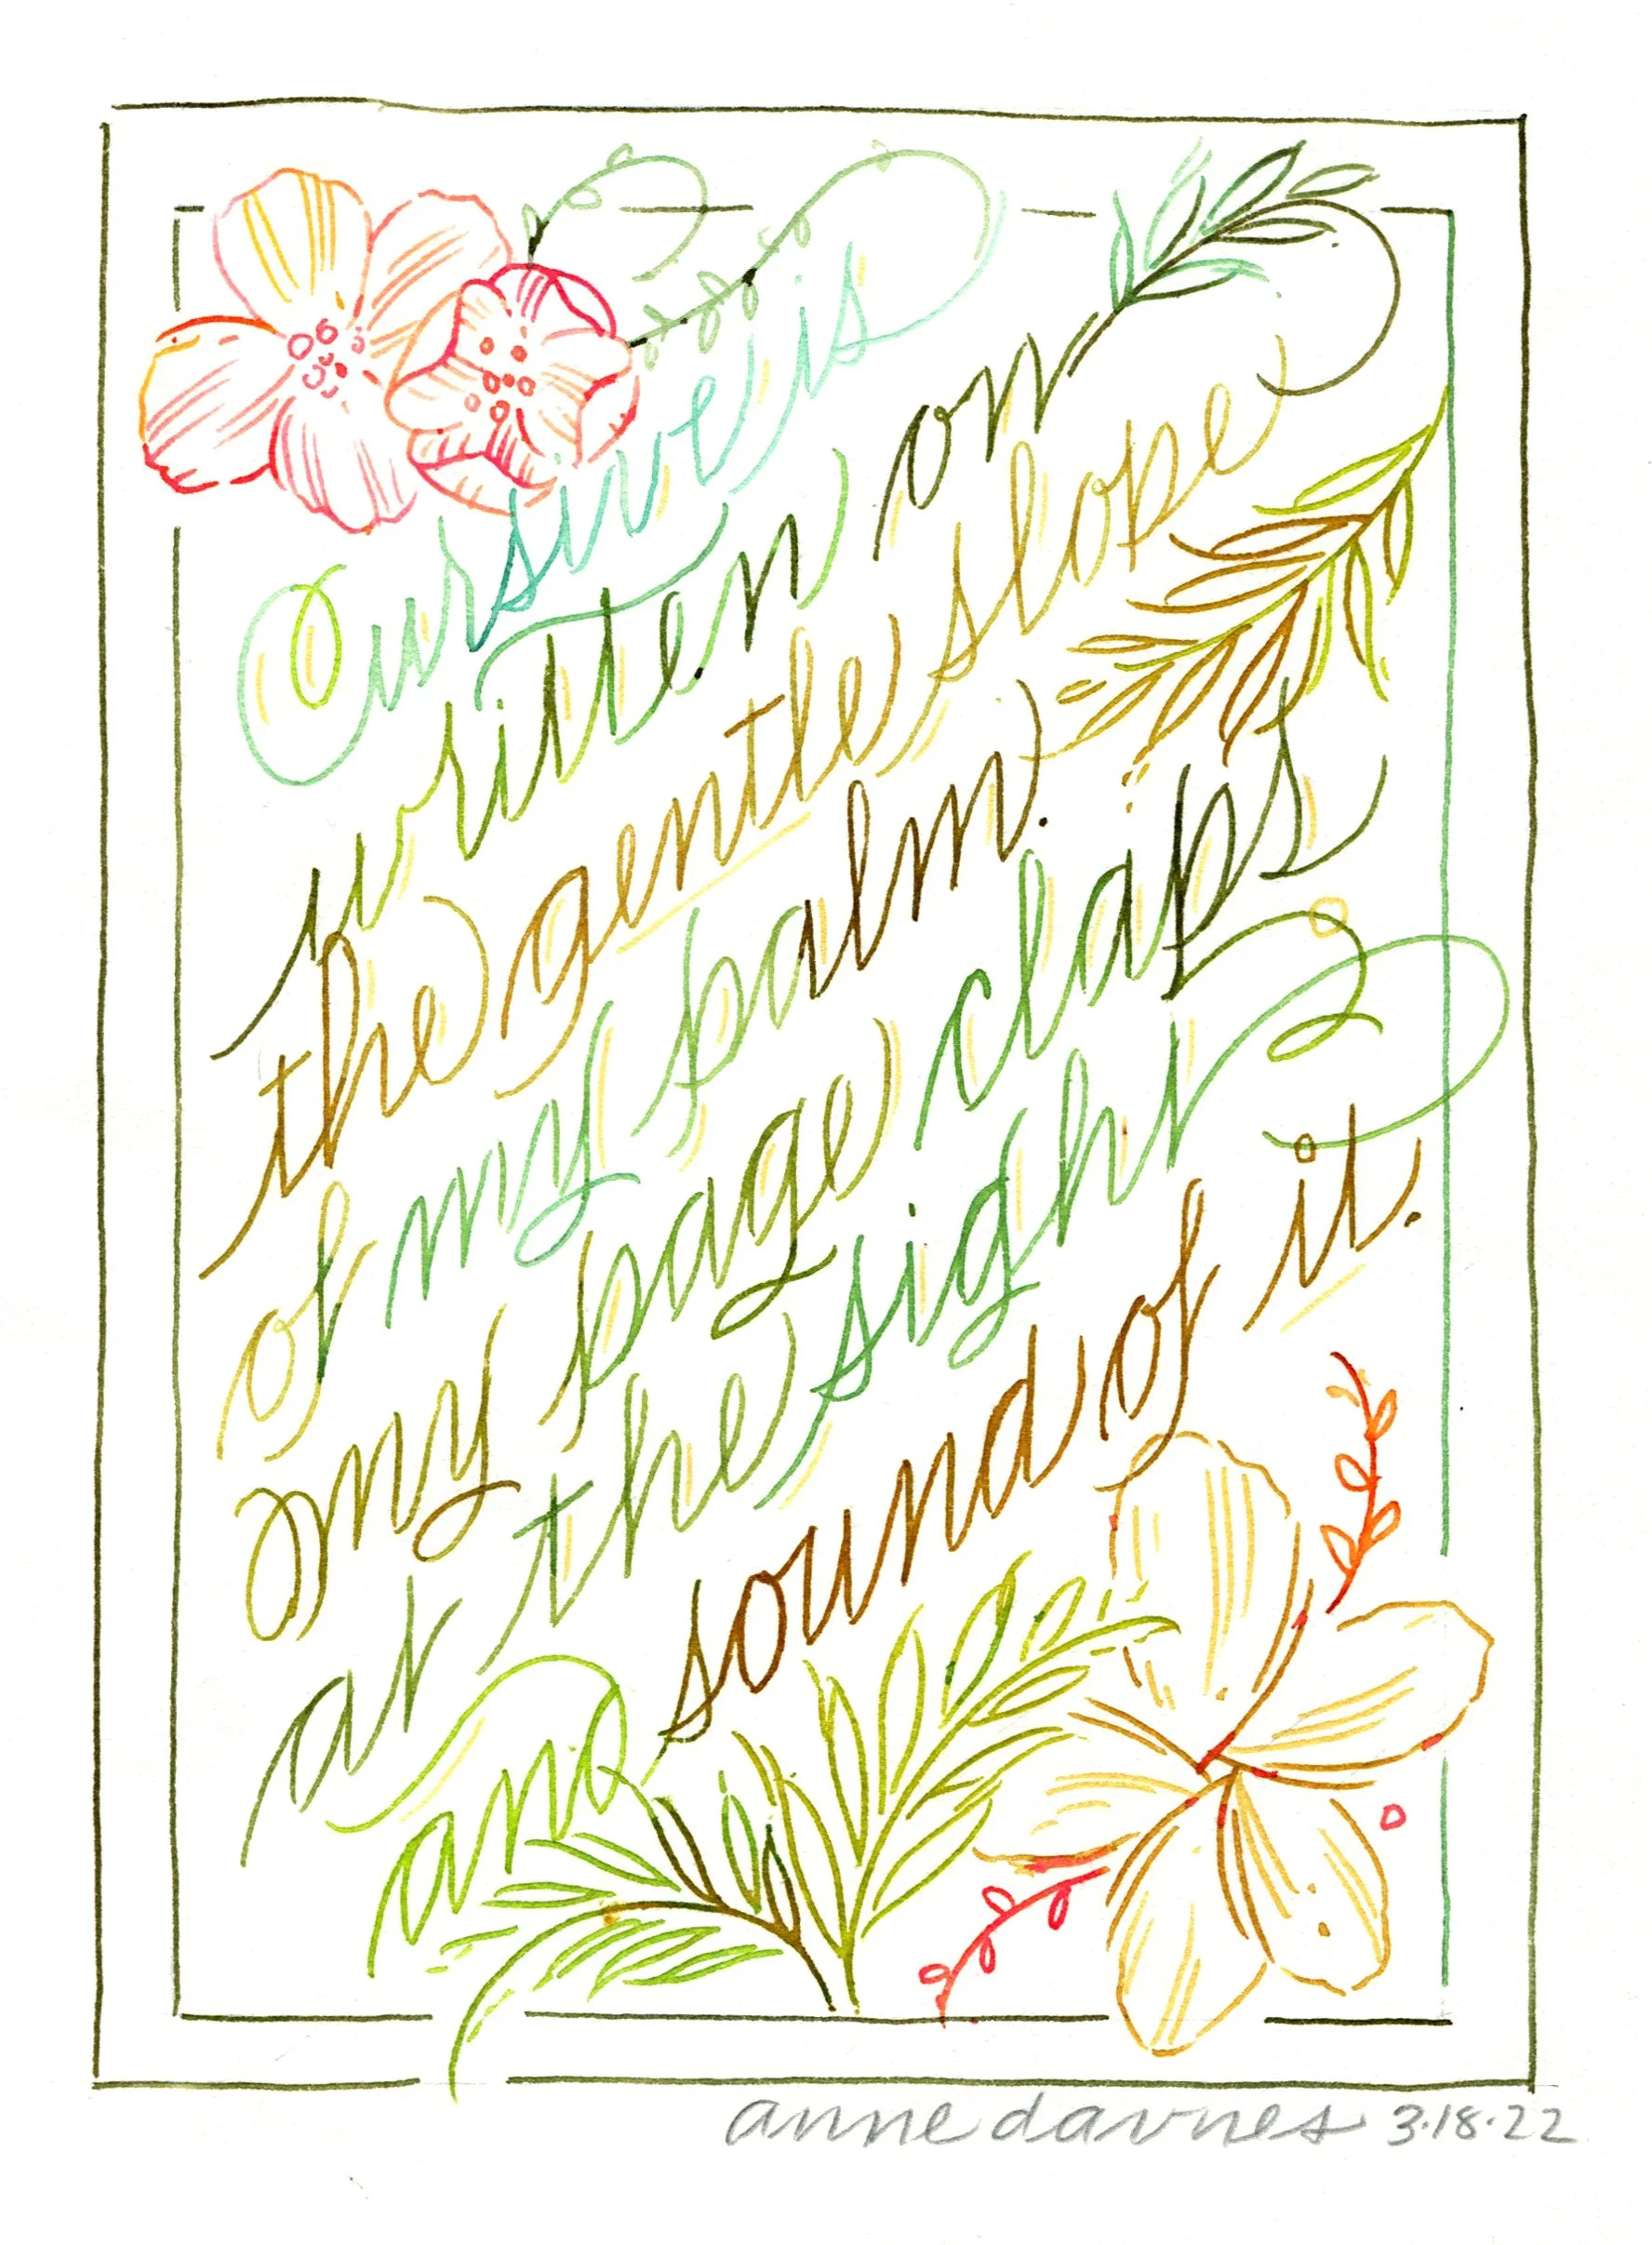 Cursive is
written on
the gentle slope
of my palm.
My page claps
at the sight
and sound of it.
anne davnes 3.18.22